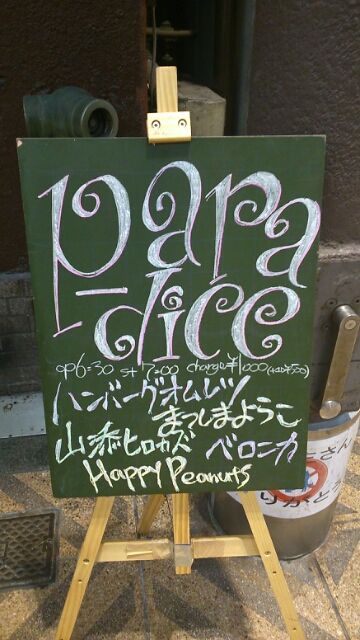 para
-dice
op6:30 st 7:00 charge¥1000
ハンバーグオムレツ
まつしまようこ
山添ヒロカズ ベロニカ
Happy Peanuts